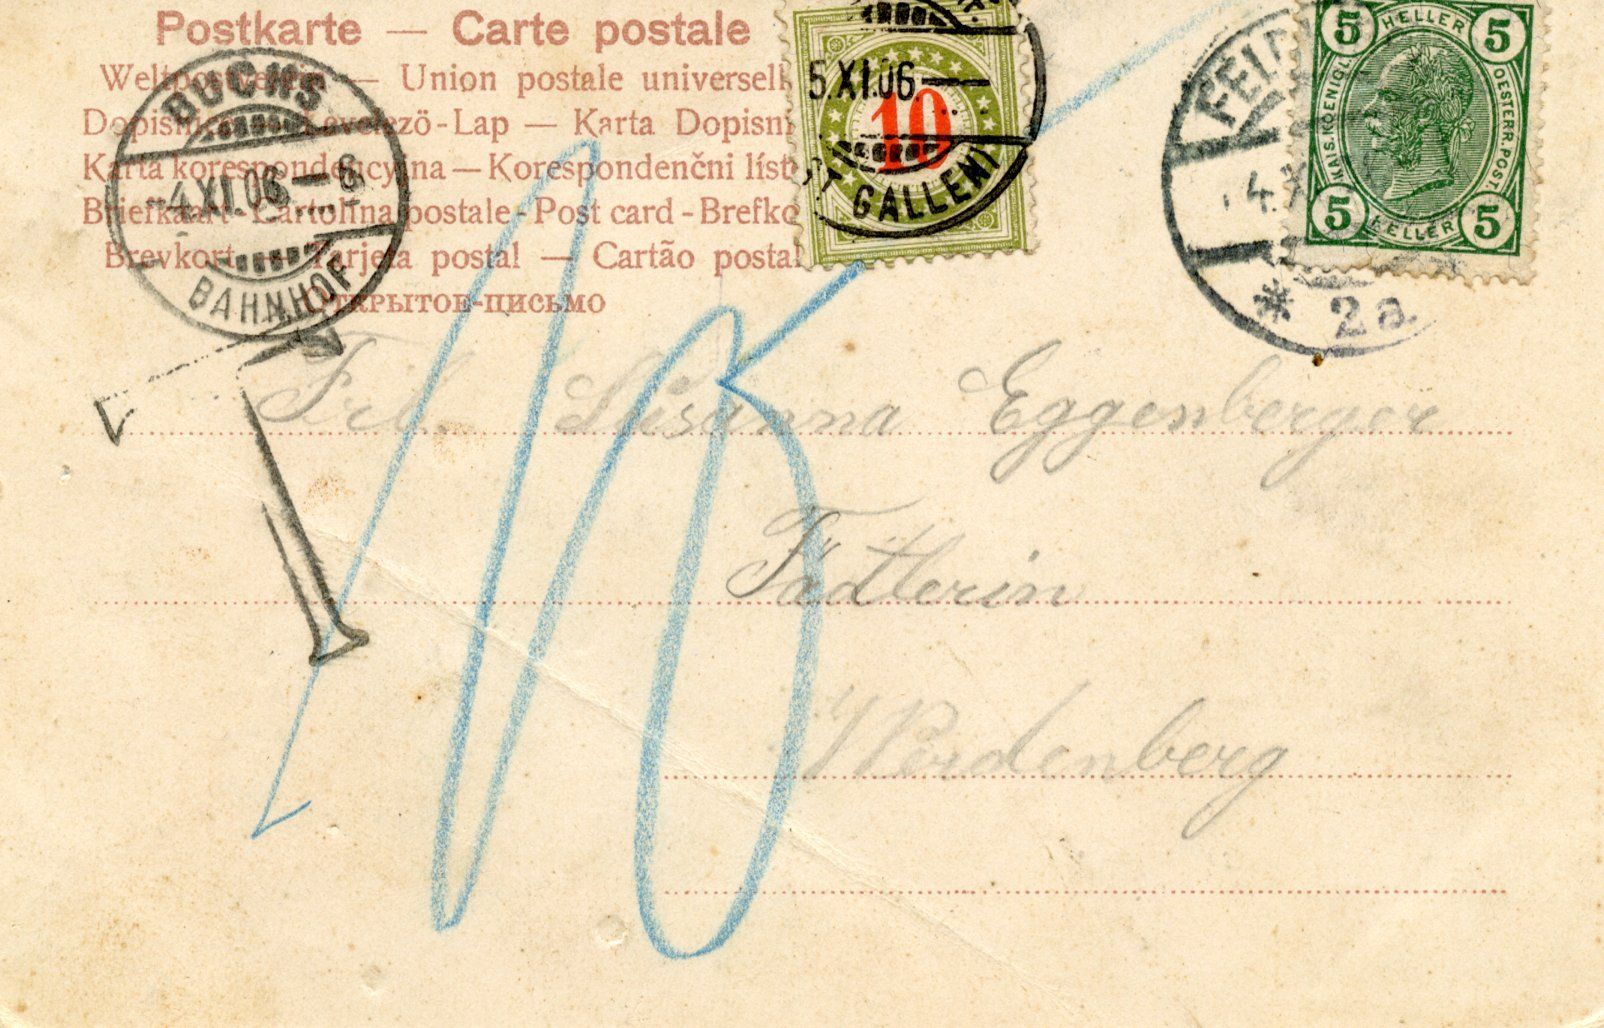 Postkarte — Carte postale
Weltpostverein — Union postale universell
Dopisnice Levelező-Lap — Karta Dopisni
Karta korespondencyjna — Korespondenčni líst
Briefkaart - Cartolina postale - Post card - Brefko
Brevkort — Tarjeta postal — Cartão postal
Открытое-письмо
BUCHS
-4.XI.06.-8
BAHNHOF
5.XI.06.
10
ST GALLEN
FELD
4.X
* 2a.
5 HELLER 5
KAIS. KOENIGL. OESTERR. POST
5 HELLER 5
T
10
Frl. Susanna Eggenberger
Fädlerin
Werdenberg